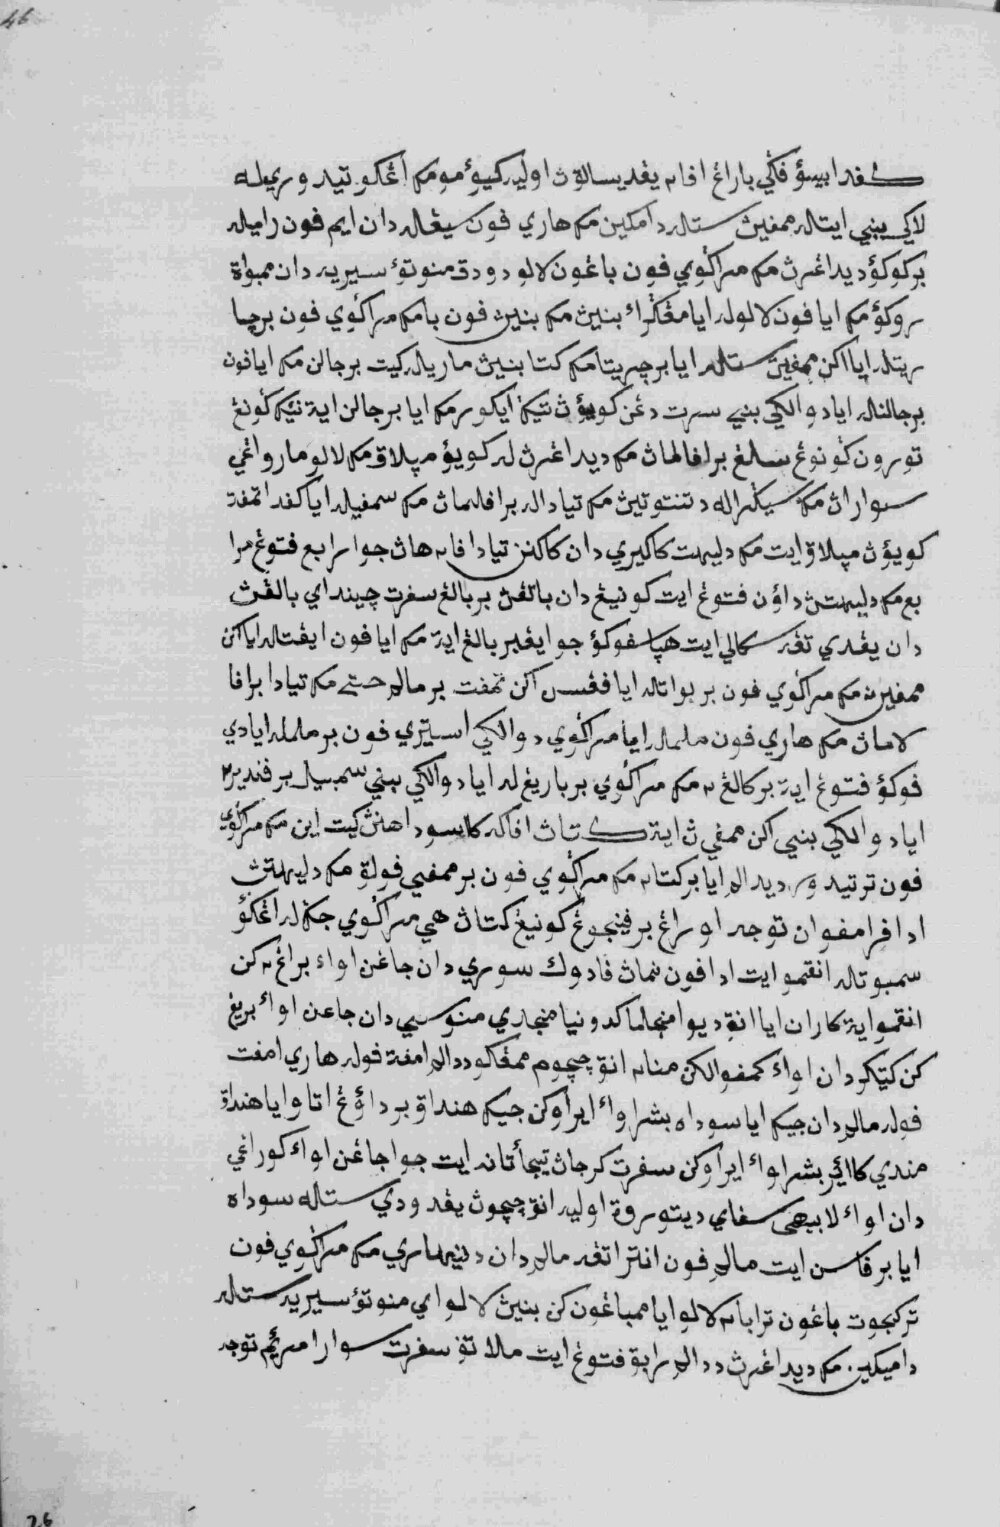 46
كفد ايسوٴ فاݢي بارڠ اڤاٮ يڠ دبساڽث اوليه كيوٴ مومك اڠكو تيدور يله
لاكي بيني ايتاله ممفيڽ ستله دامكين مك هاري فون سيڠاله دان ايم فون راميله
بركوكوٴ ديداڠرڽ مك مراكوي فون باڠون لالو دودق منونوٴ سيريه دان ممباوة
روكوٴ مك ايافون لالوله ايا مڠݢراء بنيڽ مك بنيڽ فون بامك مراكوي فون برچا
ريتله ايا اكن ممفيڽ ستله ايا برچريتا مك كتا بنيڽ ماريله كيت برجالن مك ايافون
برجالنله ايا دوالكي بيني سرت دڠن كويوٴڽ تيك ايكور مك ايا برجالن ايت نايك ݢونڠ
تورون ݢونوڠ سلڠ براف لماڽ مك ديداڠرڽ له كويوٴ مپلاق مك لالو مارواڠي
سواراڽ مك سيݢراله دتنتوتيڽ مك تيادله براف لماڽ مك سمفيله ايا كفد اتمفة
كويوٴڽ مپلاق ايت مك دليهت كاكيري دان كاكنن تيادا اڤاٮ هاڽ جوا رابع فتوڠ مرا
بع مك دليهتڽ داوٴن فتوڠ ايت كونيڠ دان بالڠڽ بربالڠ سفرت چينداي بالڠڽ
دان يڠدي تڠه سكالي ايت هپاسفوكوٴ جوا ايڠبربالڠ ايت مك ايافون ايڠتله ايا اكن
ممفيڽ مك مراكوي فون بربواتله ايا ففسن اكن تمفت برمالم دسة مك تيادا براف
لاماڽ مك هاري فون مالمله ايا مراكوي دوالكي استيري فون برمالمله ايا دي
فوكوٴ فتوڠ ايت بركالڠ ٢ مك مراكوي برباريڠ له ايا دوالكي بيني سمبيل برفندير٢
ايا دوالكي بنيي اكن ممفيڽ ايت كتاڽ افاكه كاسوداهنڽ كيت اين مك مراكوي
فون ترتيدور ديدالم ايا بركتاٮ مك مراكوي فون برممفيي فولق مك دليهتڽ
ادا فرامفوان توجه اورڠ برفينجوڠ كونيڠ كتاڽ هي مراكوي جكله اڠكوٴ
سمبوتله انقمو ايت ادا فون نماڽ فادوك سوري دان جاڠن اواء براڠ٢كن
انقمو ايت كاران ايا انق ديوا منجلما كدونيا منجادي منوسي دان جاعن اواء بريڠ
كن كتيكر دان اواء كمفوالكن منا٢ انق چوچوم ممڠكو ددالم امفة فوله هاري امفت
فوله مالم دان جيك ايا سوداه بشر اواء ايراوكن جيك هنداق برداوٴڠ اتاو ايا هنداق
مندي كااير بشر اواء ايراوكن سفرت كرجاڽ تيجأتانه ايت جوا جاڠن اواء كوراڠي
دان اواء لابيهي سڤاي ديتوروة اوليه انق چوچوڽ يڠد ودي ستله سوداه
ايا برفاسن ايت مالم فون انترا تڠه مالم دان دنيهاري مك مراكوي فون
تركجوت باڠون تراباٮ لالو ايا ممباڠون كن بنيڽ لالواي منونوٴ سيريه ستله
داميكين مك ديداڠرڽ ددالم رابق فتوڠ ايت مالاتڤ سفرت سوارا مريم توجه
26